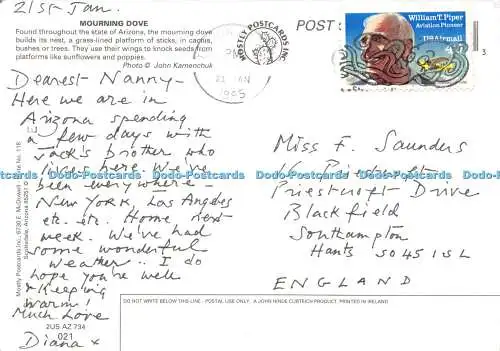 21st Jan.
MOURNING DOVE
Found throughout the state of Arizona, the mourning dove
builds its nest, a grass-lined platform of sticks, in cactus,
bushes or trees. They use their wings to knock seeds from
platforms like sunflowers and poppies.
Photo © John Kamenchuk
Dearest Nanny -
Here we are in
Arizona spending
a few days with
Jack's brother who
lives here. We've
been everywhere -
New York, Los Angeles
etc. etc. Home next
week. We've had
some wonderful
weather .. I do
hope you're well
& keeping
warm!
Much Love
Diana x
Mostly Postcards Inc.
Scottsdale, Arizona 85251
2US AZ 734
021
POST
MOSTLY POSTCARDS INC.
PM
21 JAN
1995
William T. Piper
Aviation Pioneer
US Airmail
Miss F. Saunders
16
Priestcroft Drive
Blackfield
Southampton
Hants SO45 1SL
ENGLAND
DO NOT WRITE BELOW THIS LINE - POSTAL USE ONLY. A JOHN HINDE CURTEICH PRODUCT, PRINTED IN IRELAND
Dodo-Postcards Dodo-Postcards Dodo-Postcards Dodo-Postcards Dodo-Postcards